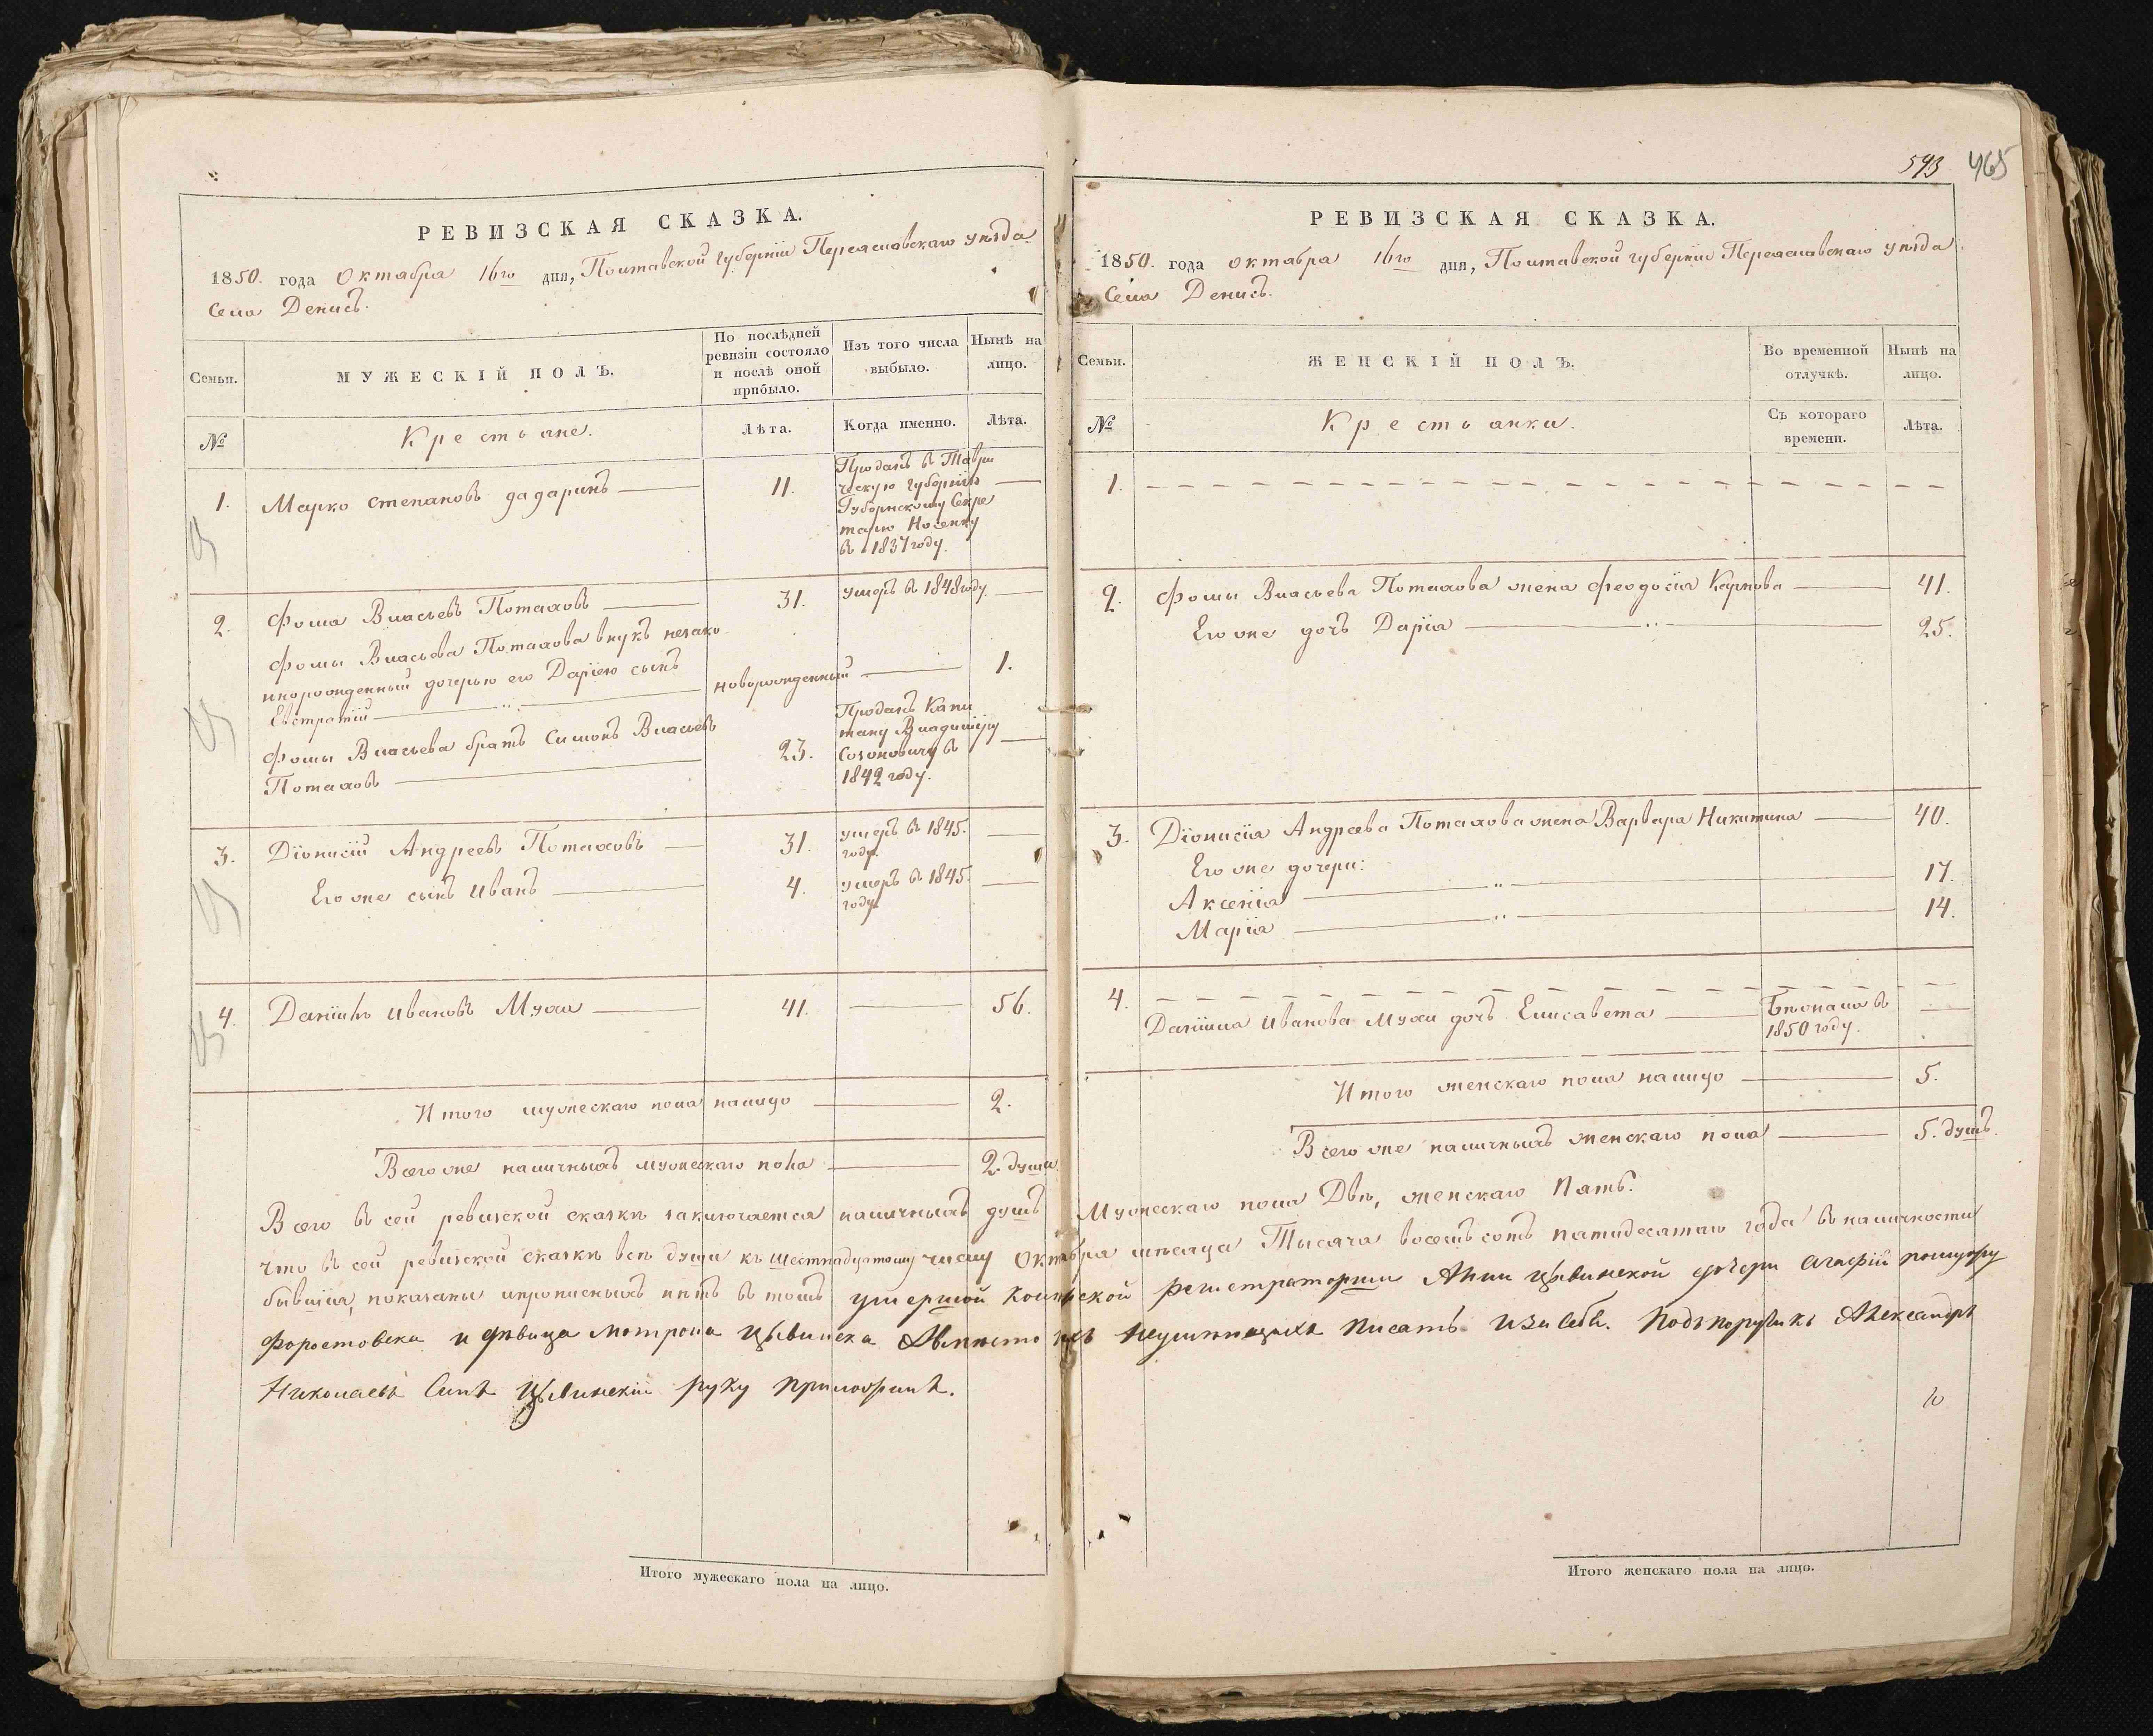 РЕВИЗСКАЯ СКАЗКА.
1850. года Октября 16го дня, Полтавской губерніи Переяславскаго уѣзда
Села Денисъ.
Семьи.
МУЖЕСКІЙ ПОЛЪ.
По послѣдней
ревизіи состояло
и послѣ оной
прибыло.
Изъ того числа
выбыло.
Нынѣ на
лицо.
№
Крестьяне.
Лѣта.
Когда именно.
Лѣта.
1. Марко Степановъ 11.
Проданъ въ Таври
ческую губернію
Губернскому Секре
тарю Носенку
въ 1837 году.
2. Фома Власьевъ Потаповъ 31. умеръ въ 1848 году.
Фомы Власьева Потапова внукъ незако
ннорожденный дочерью его Даріею сынъ
Евстратій новорожденный 1.
Фомы Власьева братъ Симонъ Власьевъ
Потаповъ 23.
Проданъ Капи
тану Владиміру
в
1842 году.
3. Діонисій Андреевъ Потаповъ 31. умеръ в 1845.
году.
Его же сынъ Иванъ 4. умеръ в 1845.
году.
4. Даніилъ Ивановъ Муха 41. 56.
Итого мужескаго пола налицо 2.
Всего же наличныхъ мужескаго пола 2. души
593 465
РЕВИЗСКАЯ СКАЗКА.
1850. года октября 16го дня, Полтавской губерніи Переяславскаго уѣзда
Села Денисъ.
Семьи.
ЖЕНСКІЙ ПОЛЪ.
Во временной
отлучкѣ.
Нынѣ на
лицо.
№
Крестьянки.
Съ котораго
времени.
Лѣта.
1.
2. Фомы Власьева Потапова жена Феодосія Карпова 41.
Его же дочь Дарія 25.
3. Діонисія Андреева Потапова жена Варвара Никитина 40.
Его же дочери:
Аксенія 17.
Марія 14.
4.
Даніила Иванова Мухи дочь Елисавета Бѣжала в
1850 году.
Итого женскаго пола налицо 5.
Всего же наличныхъ женскаго пола 5. душъ.
Всего въ сей ревизской сказкѣ заключается наличныхъ душъ Мужескаго пола Двѣ, женскаго Пять.
Что въ сей ревизской сказкѣ всѣ души къ шестнадцатому числу Октября мѣсяца Тысяча восемь сотъ пятидесятаго года въ наличности
бывшія, показаны и прописныхъ нѣтъ въ томъ умершой регистраторши Анны дочери Агафіи
и дѣвица Мотрона вмѣсто ихъ неумѣющихъ писать и за себя. Подъпоручикъ Александръ
Николаевъ Сынъ руку приложилъ.
Итого мужескаго пола на лицо.
Итого женскаго пола на лицо.